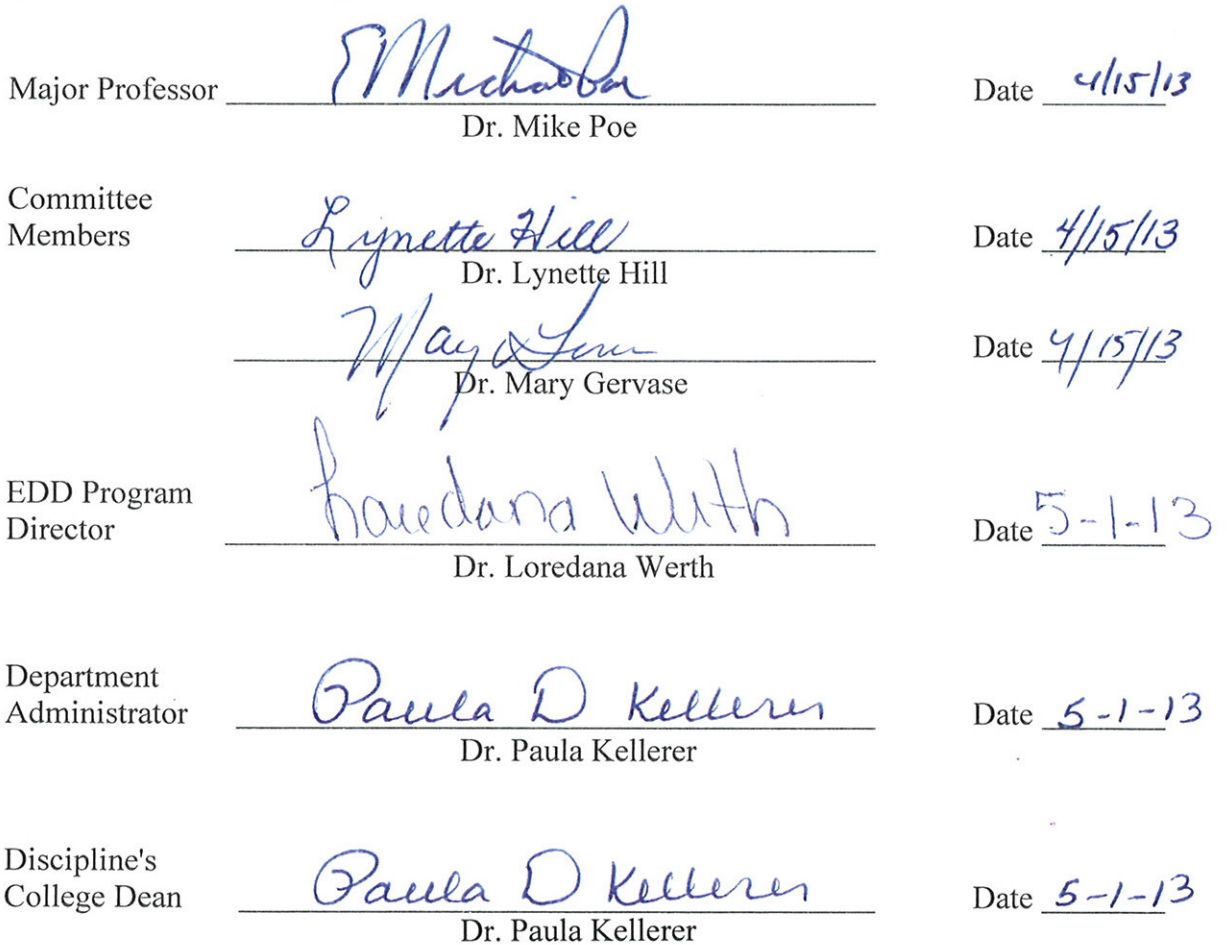 Major Professor EMichael Poe Date 4/15/13
Dr. Mike Poe
Committee
Members Lynette Hill Date 4/15/13
Dr. Lynette Hill
Date 4/15/13
Dr. Mary Gervase
EDD Program
Director Loredana Werth Date 5-1-13
Dr. Loredana Werth
Department
Administrator Paula D Kellerer Date 5-1-13
Dr. Paula Kellerer
Discipline's
College Dean Paula D Kellerer Date 5-1-13
Dr. Paula Kellerer